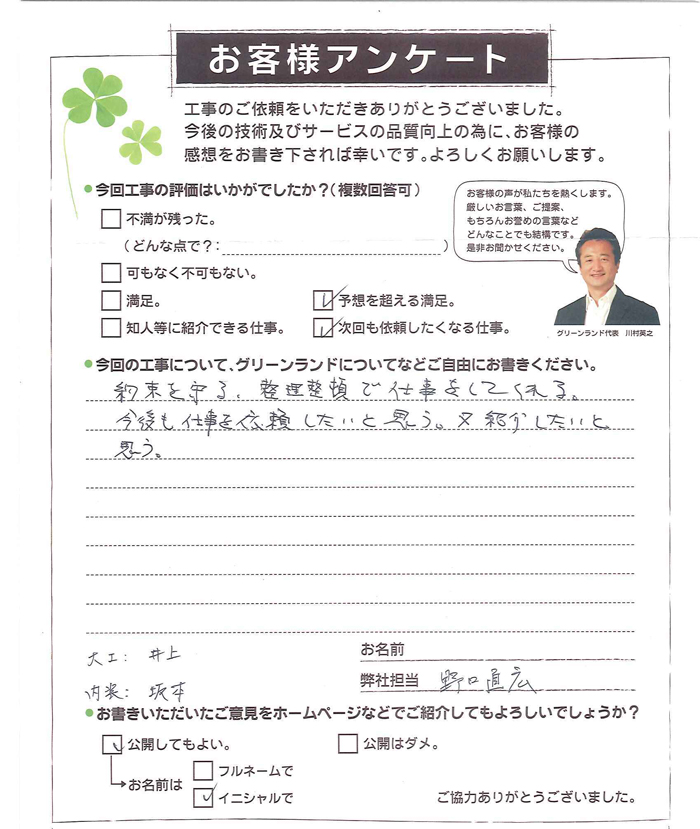 お客様アンケート
工事のご依頼をいただきありがとうございました。
今後の技術及びサービスの品質向上の為に、お客様の
感想をお書き下されば幸いです。よろしくお願いします。
●今回工事の評価はいかがでしたか？(複数回答可)
不満が残った。
(どんな点で？: )
可もなく不可もない。
満足。
予想を超える満足。
知人等に紹介できる仕事。
次回も依頼したくなる仕事。
お客様の声が私たちを熱くします。
厳しいお言葉、ご提案、
もちろんお誉めの言葉など
どんなことでも結構です。
是非お聞かせください。
グリーンランド代表 川村英之
●今回の工事について、グリーンランドについてなどご自由にお書きください。
約束を守る、整理整頓で仕事をしてくれる。
今後も仕事を依頼したいと思う。又紹介したいと
思う。
大工: 井上
内装: 坂本
お名前
弊社担当 野口直広
●お書きいただいたご意見をホームページなどでご紹介してもよろしいでしょうか？
公開してもよい。
公開はダメ。
お名前は
フルネームで
イニシャルで
ご協力ありがとうございました。